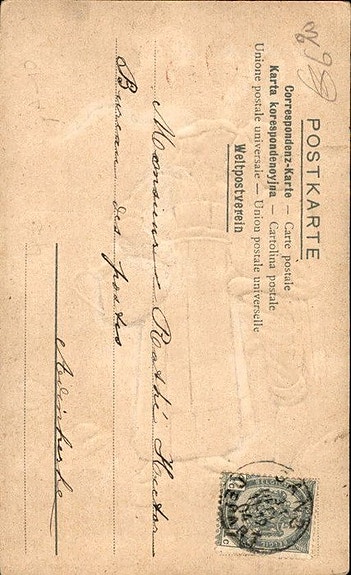 POSTKARTE
Correspondenz-Karte — Carte postale
Karta korespondenoyjna — Cartolina postale
Unione postale universale — Union postale universelle
Weltpostverein
Monsieur Hector
Bureau des postes